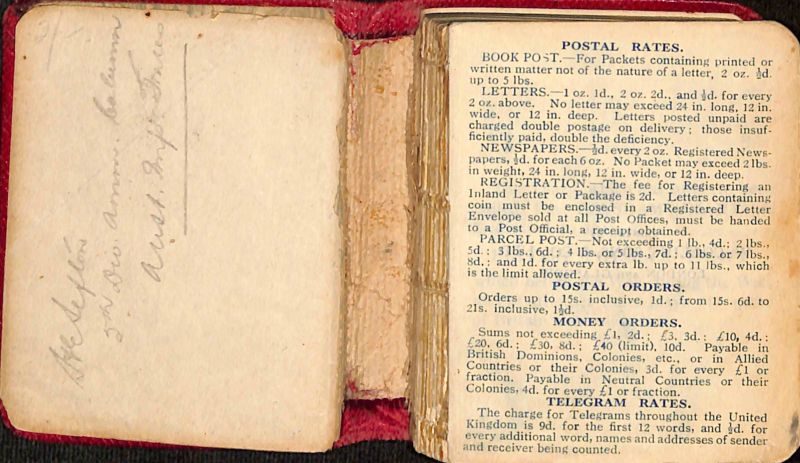 Sefton
5th Div. Amm. Column
Aust. Imp. Forces
POSTAL RATES.
BOOK POST.—For Packets containing printed or
written matter not of the nature of a letter, 2 oz. ½d.
up to 5 lbs.
LETTERS.—1 oz. 1d., 2 oz. 2d., and ½d. for every
2 oz. above. No letter may exceed 24 in. long, 12 in.
wide, or 12 in. deep. Letters posted unpaid are
charged double postage on delivery; those insuf-
ficiently paid, double the deficiency.
NEWSPAPERS.—½d. every 2 oz. Registered News-
papers, ½d. for each 6 oz. No Packet may exceed 2 lbs.
in weight, 24 in. long, 12 in. wide, or 12 in. deep.
REGISTRATION.—The fee for Registering an
Inland Letter or Package is 2d. Letters containing
coin must be enclosed in a Registered Letter
Envelope sold at all Post Offices, must be handed
to a Post Official, a receipt obtained.
PARCEL POST.—Not exceeding 1 lb., 4d.; 2 lbs.,
5d.; 3 lbs., 6d.; 4 lbs. or 5 lbs., 7d.; 6 lbs. or 7 lbs.,
8d.; and 1d. for every extra lb. up to 11 lbs., which
is the limit allowed.
POSTAL ORDERS.
Orders up to 15s. inclusive, 1d.; from 15s. 6d. to
21s. inclusive, 1½d.
MONEY ORDERS.
Sums not exceeding £1, 2d.; £3, 3d.; £10, 4d.;
£20, 6d.; £30, 8d.; £40 (limit), 10d. Payable in
British Dominions, Colonies, etc., or in Allied
Countries or their Colonies, 3d. for every £1 or
fraction. Payable in Neutral Countries or their
Colonies, 4d. for every £1 or fraction.
TELEGRAM RATES.
The charge for Telegrams throughout the United
Kingdom is 9d. for the first 12 words, and ½d. for
every additional word, names and addresses of sender
and receiver being counted.